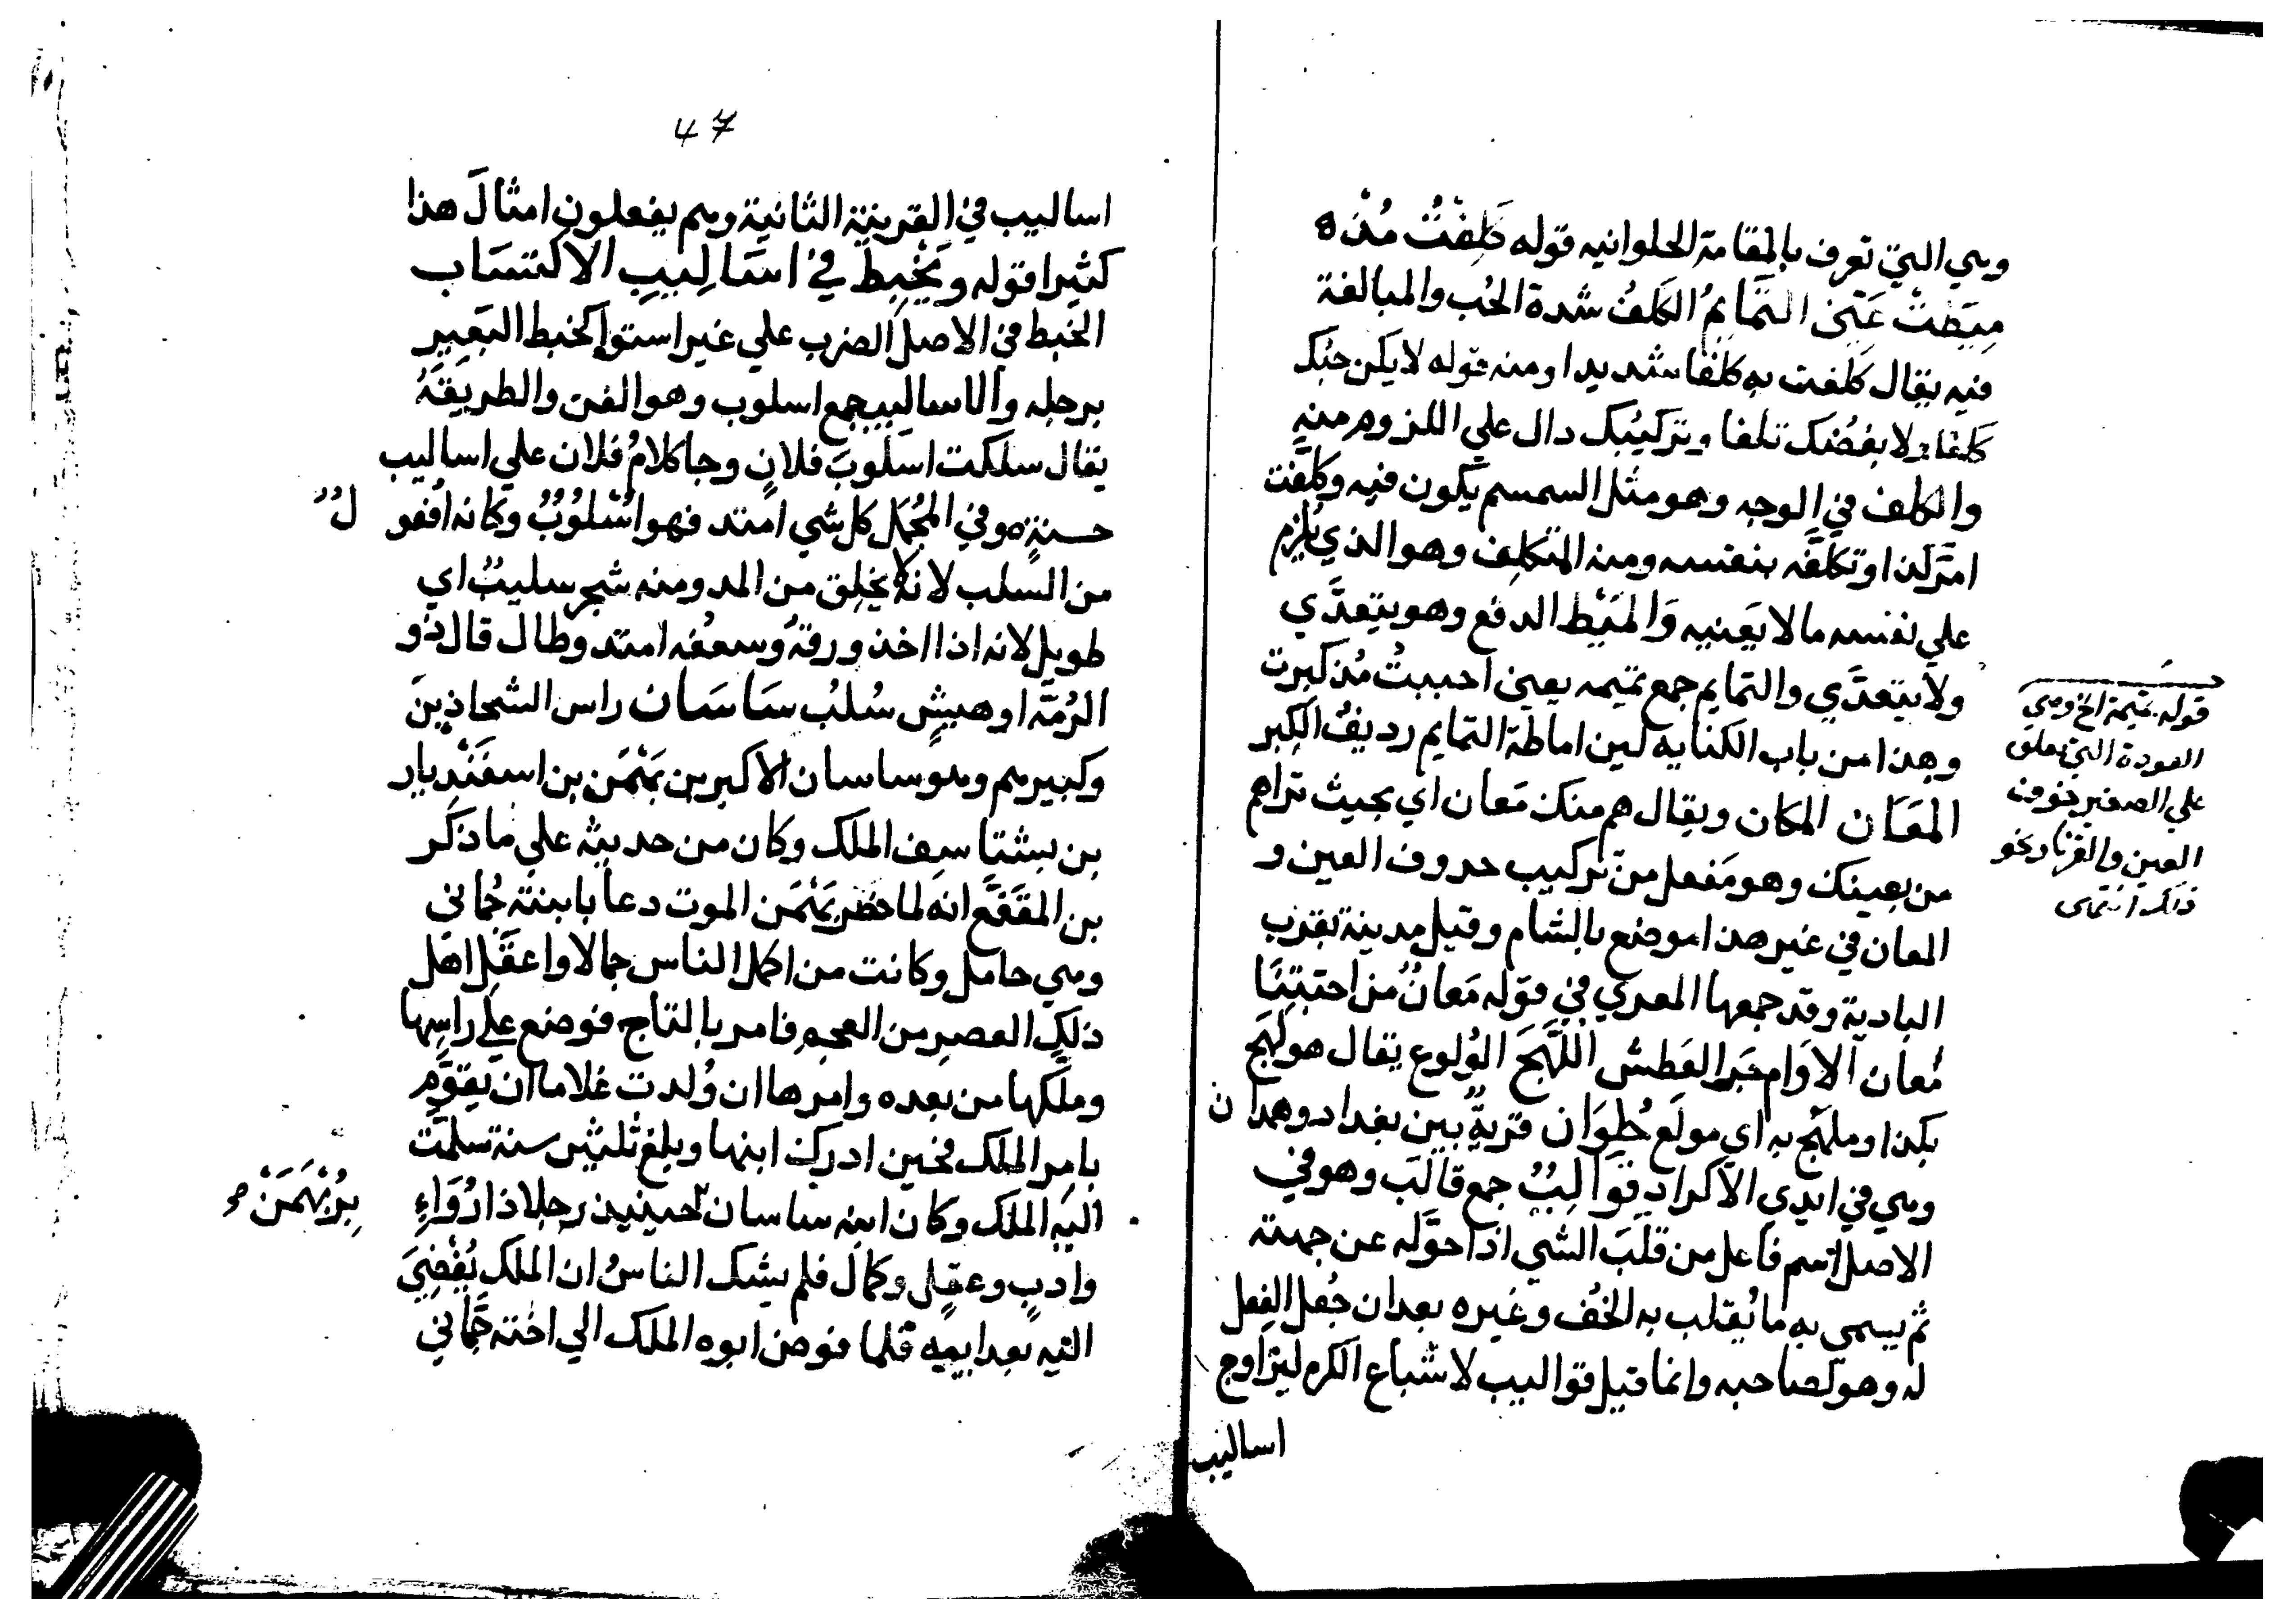 وهي التي تعرف بالمقامة الحلوانيه قوله كَلِفْتُ مُذْ ه
مِيطَتْ عَنّى التمَايمُ الكَلَفُ شدة الحُب والمبالغة
فيه يقال كَلفت به كلفا شديدا ومنه قوله لا يكن حبك
كلفا ولا بغضك تلفا وتركيبك دال على اللزوم منه
والكلف في الوجه وهو مثل السمسم يكون فيه وكلّفت
امرَ كذا وتكلّفه بنفسه ومنه المتكلِف وهو الذي يُلزم
علي نفسه ما لا يَعنيه وَالمَيْط الدفع وهو يتعدَّي
ولا يتعدَّي والتمايم جمع تميمه يعني احببتُ مُذ كبرت
وهذا من باب الكنايه لين اماطة التمايم رديفُ الكِبر
المَعَان المكان ويقال هم منك مَعان اي بحيث تراهم
من بعينك وهو مَفعل من تركيب حروف العين و
المعان في غير هذا موضع بالشام وقيل مدينة بقرب
البادية وقد جمعها المعري في قوله مَعانٌ من احبتِنَا
مُعان الاوَام حَرّ العَطش اللَّهَجَ الوُلوع يقال هو لَهج
بكذا وملهَج به اي مولَع حُلوَان قرية بين بغداد وهمدان
وهي في ايدي الاكراد قوَالِيبُ جمع قالَب وهو في
الاصل اسم فاعل من قَلَبَ الشي اذا حوَّله عن جهته
ثم يسمى به ما يُقلب به الخُف وغيره بعد ان جُعل الفِعل
له وهو لصاحبه وانما قيل قواليب لاشباع الكرم ليزاوج
اساليب
قوله تميمة الخ وهي
العوذة التي تعلق
علي الصغير خوف
العين والقرنا ونحو
ذلك انتهى
47
اساليب في القرينة الثانية وهم يفعلون امثالَ هذا
كثيرا قوله وَيَخْبِط في اسَالِيبِ الاكتسَاب
الخَبط في الاصل الضرب علي غير استوا كخبط البَعير
برجله والاساليب جمع اسلوب وهو الفن والطريقَةُ
يقال سلكت اسلوبَ فلانٍ وجا كلامُ فلان علي اساليب
حسنةٍ ه وفي المُجمَل كل شي امتد فهو اسْلُوبٌ وكانه اُفعولٌ
من السلب لانه لا يخلو من المد ومنه شجر سليبٌ اي
طويل لانه اذا اخذ ورقهُ وسعفه امتد وطال قال ذو
الرُمّة او هيشٍ سُلُبُ سَاسَان راس الشحاذينَ
وكبيرهم وهو ساسان الاكبر بن بَهْمَن بن اسفَنْدِيار
بن بشتاسف الملك وكان من حديثه علي ما ذكر
بن المقفَّع انه لما حضر بَهْمَن الموت دعا بابنته خُماني
وهي حامل وكانت من اكمل الناس جمالا واعقَلِ اهل
ذلك العصر من العجم فامر بالتاج فوضع علي راسِها
وملّكها من بعده وامرها ان وُلدت غلاما ان يقوَّم
بامر الملك فحين ادرك ابنها وبلغ ثلثين سنة سلمَت
اليه الملك وكان ابنه ساسان حينيذ رجلا ذا رُوَاءِ
بِرُ بَهْمَنْ صح
وادبٍ وعقلٍ وكمال فلم يشك الناسُ ان الملك يُفْضِيَ
اليه بعد ابيه فلما فوض ابوه الملك الي اخته خُماني